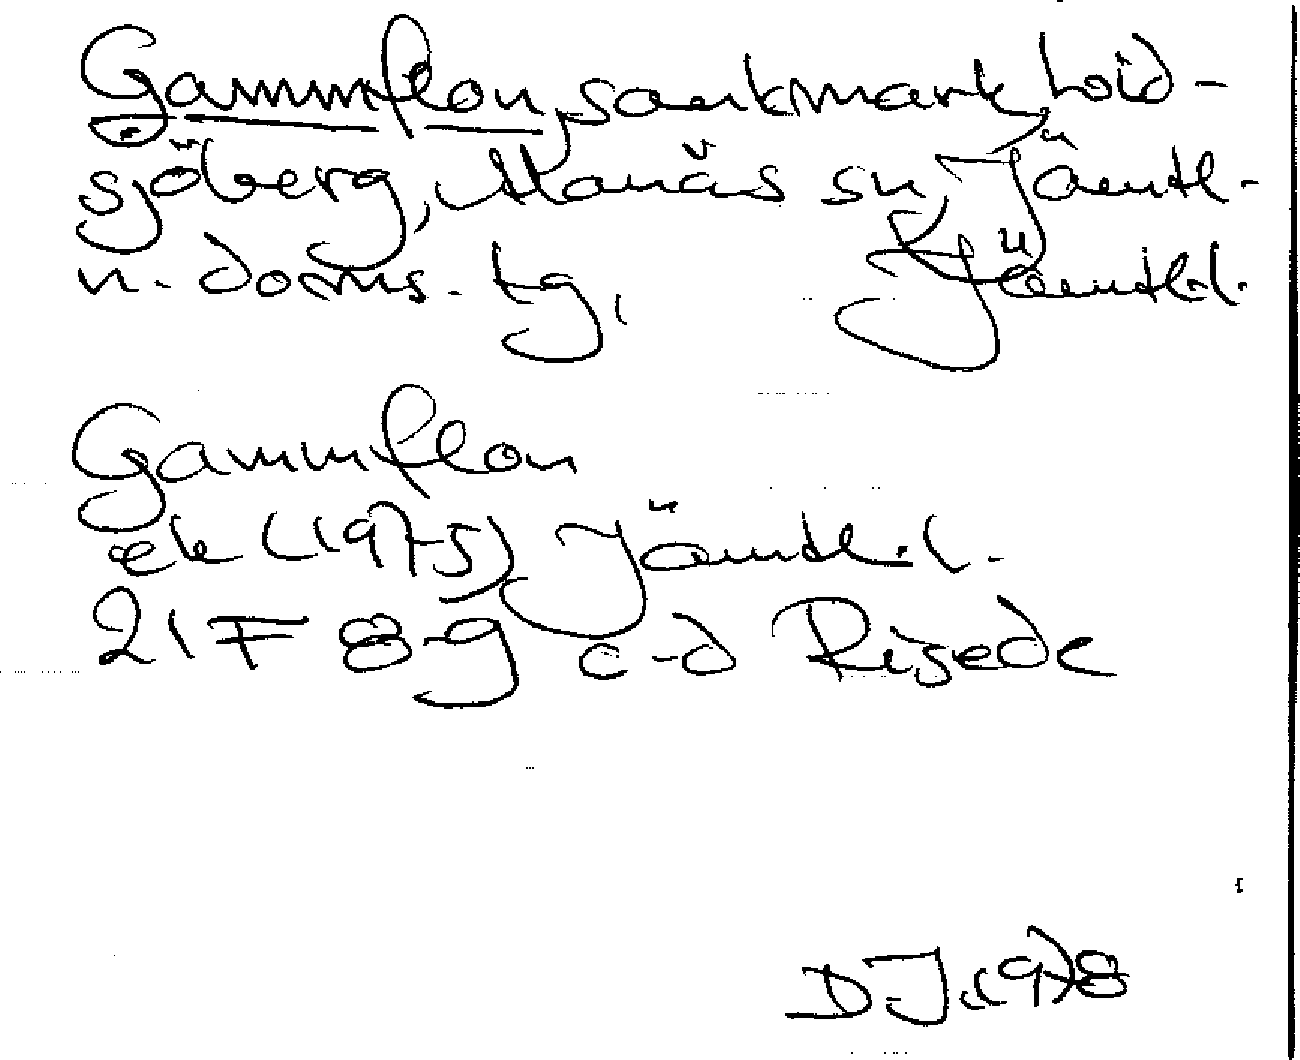 Gammflon, sankmark, Hoid-
sjöberg, Alanäs sn, Jämtl.
n. doms. tg, Jämtl.l.
Gammflon
ek (1975) Jämtl.l.
21F 8-g c-d Risede
D.J. 1978